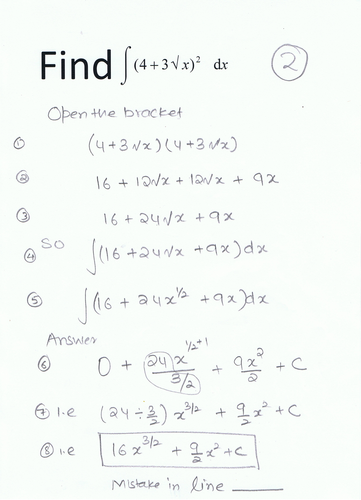 Find ∫(4+3√x)² dx ②
Open the bracket
① (4+3√x)(4+3√x)
② 16 + 12√x + 12√x + 9x
③ 16 + 24√x + 9x
④ So ∫(16+24√x+9x)dx
⑤ ∫(16 + 24x^1/2 + 9x)dx
Answer
⑥ 0 + 24x^1/2+1 / 3/2 + 9x²/2 + C
⑦ i.e (24 ÷ 3/2) x^3/2 + 9/2 x² + C
⑧ i.e 16x^3/2 + 9/2 x² + C
Mistake in line ______